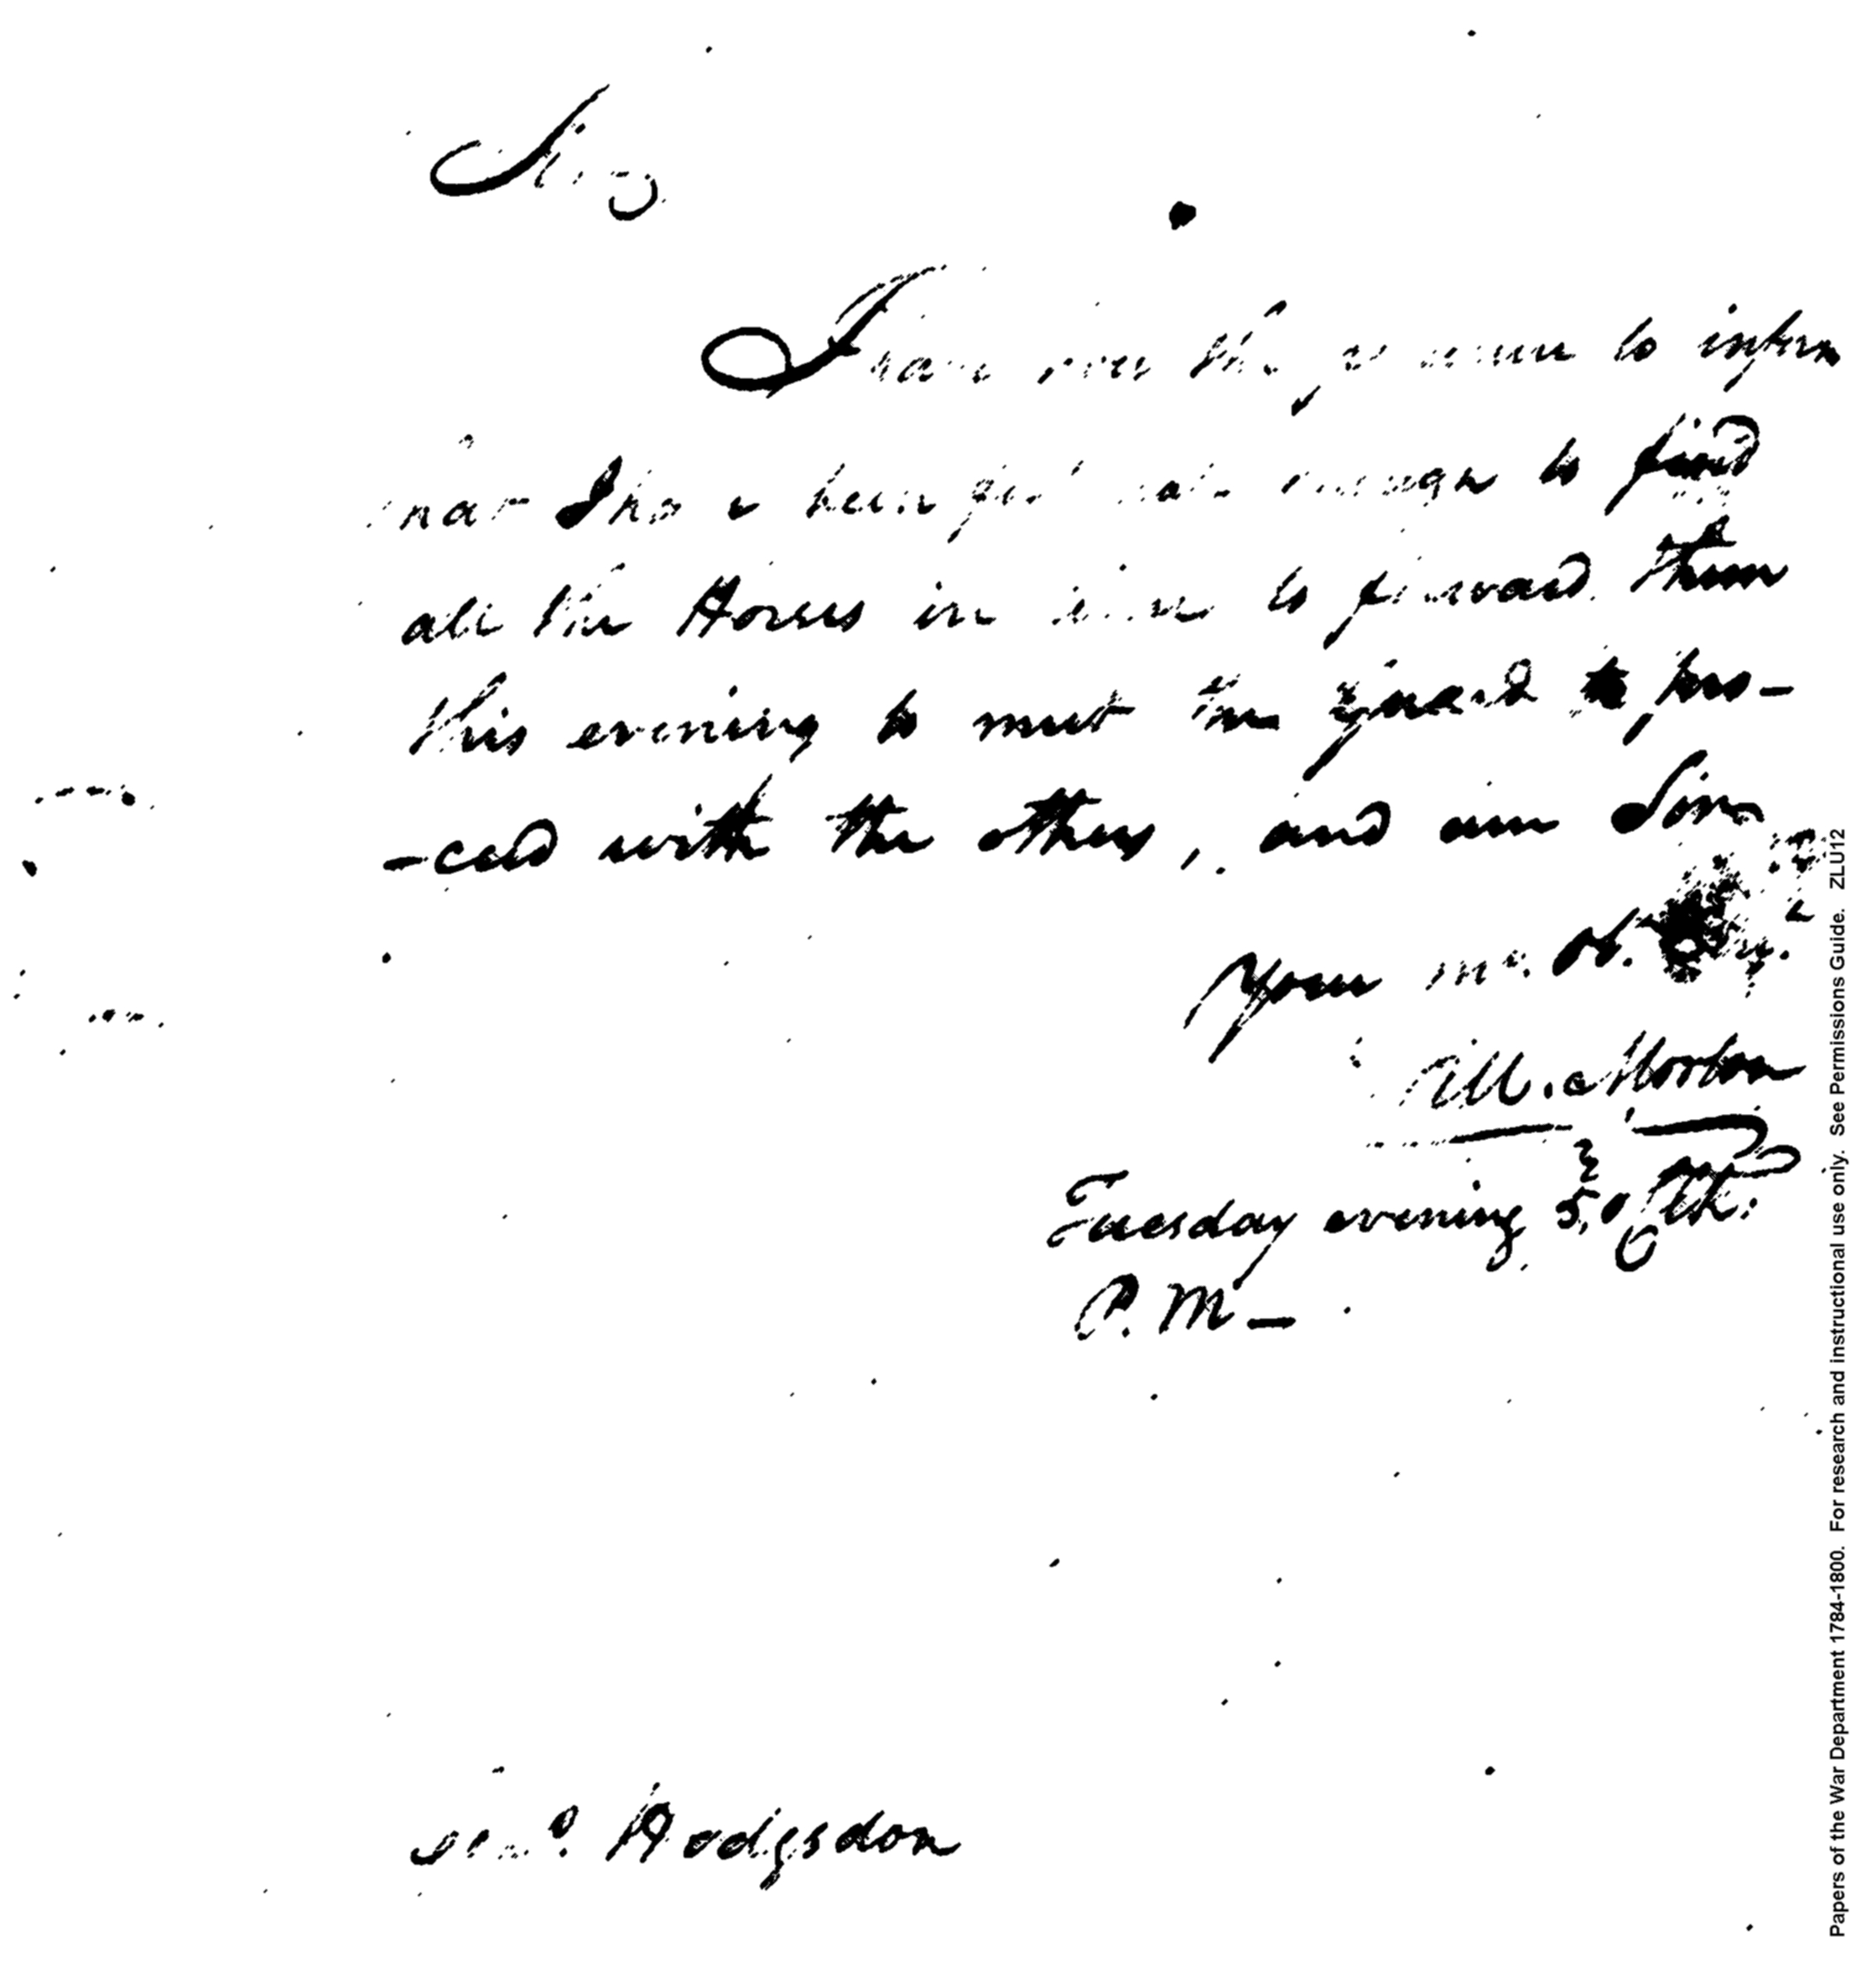 Sir,
I have now the pleasure to inform
that I have been fortunate enough to find
all the Horses in time to forward them
this evening to meet the guard to pro-
-ceed with the others, and am Sir
Your mo. Ob.
Will. Morton
Tuesday evening 5, O'Clk:
P.M—
Sam.l Hodgsdon
Papers of the War Department 1784-1800. For research and instructional use only. See Permissions Guide. ZLU12